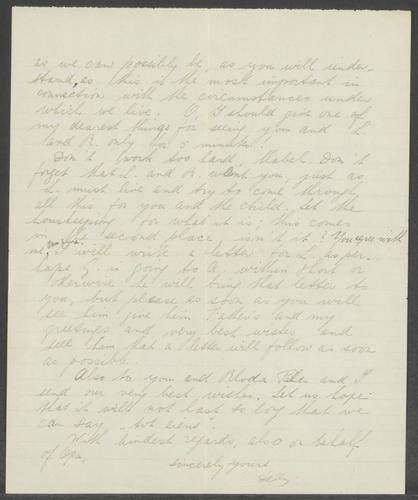 as we can possibly be, as you will under-
stand, as this is the most important in
connection with the circumstances under
which we live. O, I should give one of
my dearest things for seeing you and L.
and R. only for 5 minutes!
Don't work too hard, Mabel. Don't
forget that L. and R. want you, just as
L. must live and try to come through
all this for you and the child. Let the
housekeeping for what it is; this comes
in the second place, isn't it? You agree with
me, I will write a letter for L. as per-
haps G. is going to A. within short or
otherwise he will bring that letter to
you, but please as soon as you will
see him give him Father's and my
greetings and very best wishes and
tell him that a letter will follow as soon
as possible.
Also to you and Rhoda and I
send our very best wishes. Let us hope
that it will not last so long that we
can say "tot ziens"
With kindest regards, also on behalf
of Opa,
sincerely yours